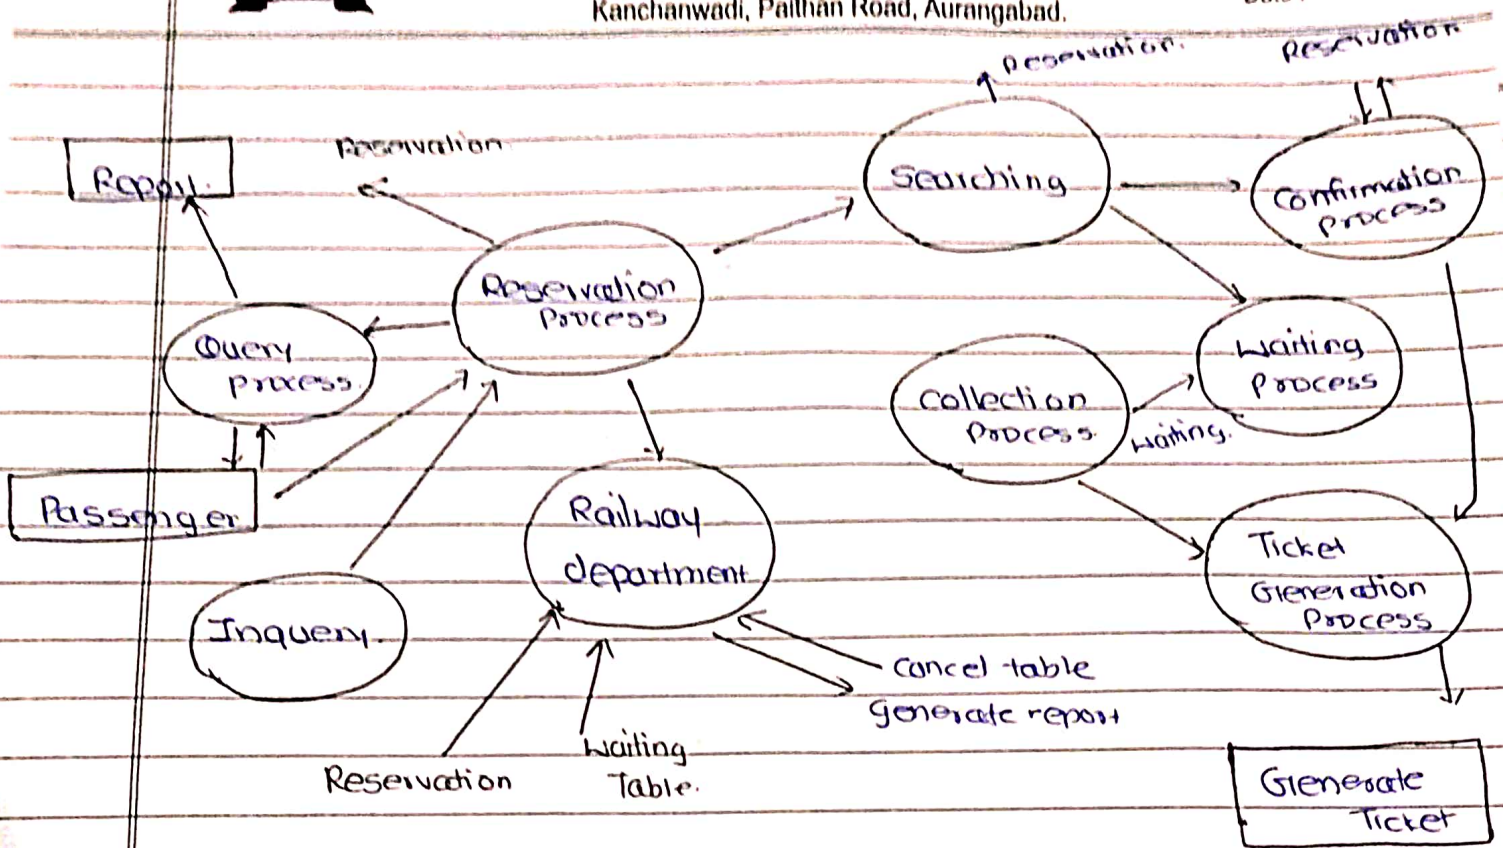 Kanchanwadi, Paithan Road, Aurangabad.
Reservation.
Reservation
Report.
Reservation
Searching
Confirmation
Process
Reservation
Process
Query
process.
Waiting
Process
Collection
Process.
Waiting.
Passenger
Railway
department
Ticket
Generation
Process
Inquery.
Cancel table
Generate report
Reservation
Waiting
Table.
Generate
Ticket